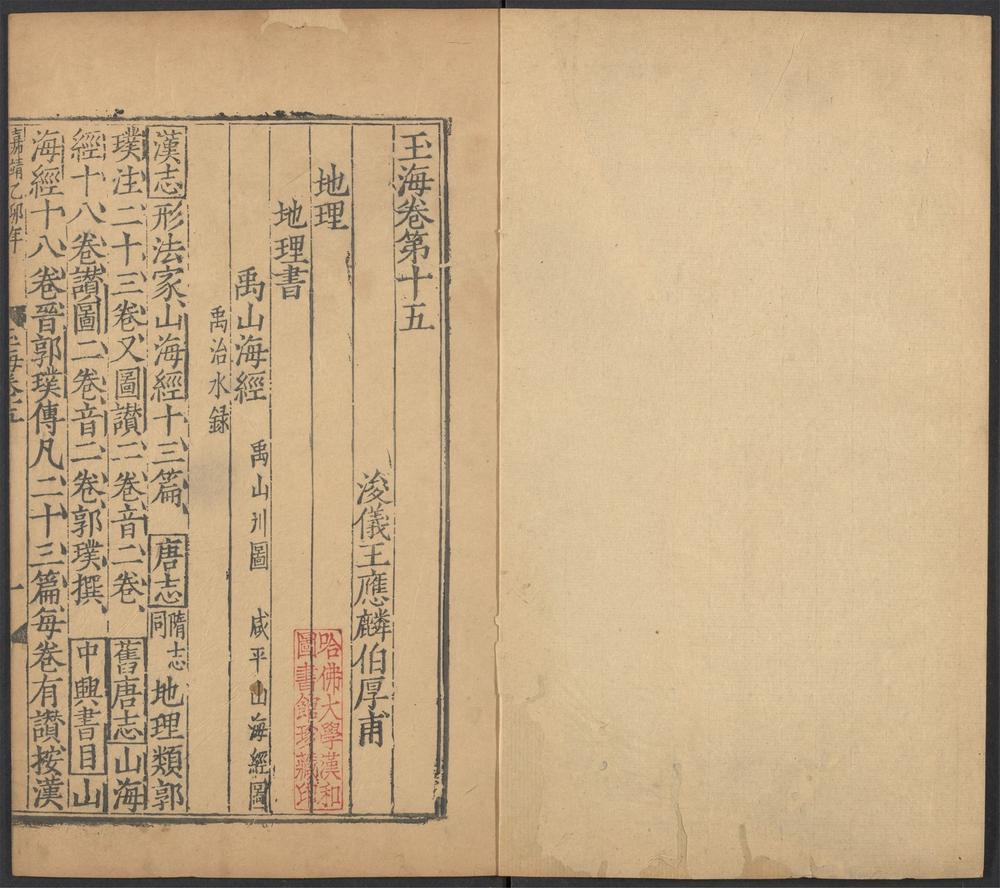 玉海卷第十五
浚儀王應麟伯厚甫
地理
地理書
禹山海經 禹山川圖 咸平山海經圖
禹治水録
漢志形法家山海經十三篇唐志隋志同地理類郭
璞注二十三卷又圖讃二卷音二卷舊唐志山海
經十八卷讃圖二卷音二卷郭璞撰中興書目山
海經十八卷晉郭璞傳凡二十三篇每卷有讃按漢
嘉靖乙卯年
一
哈佛大學漢和
圖書館珍藏印